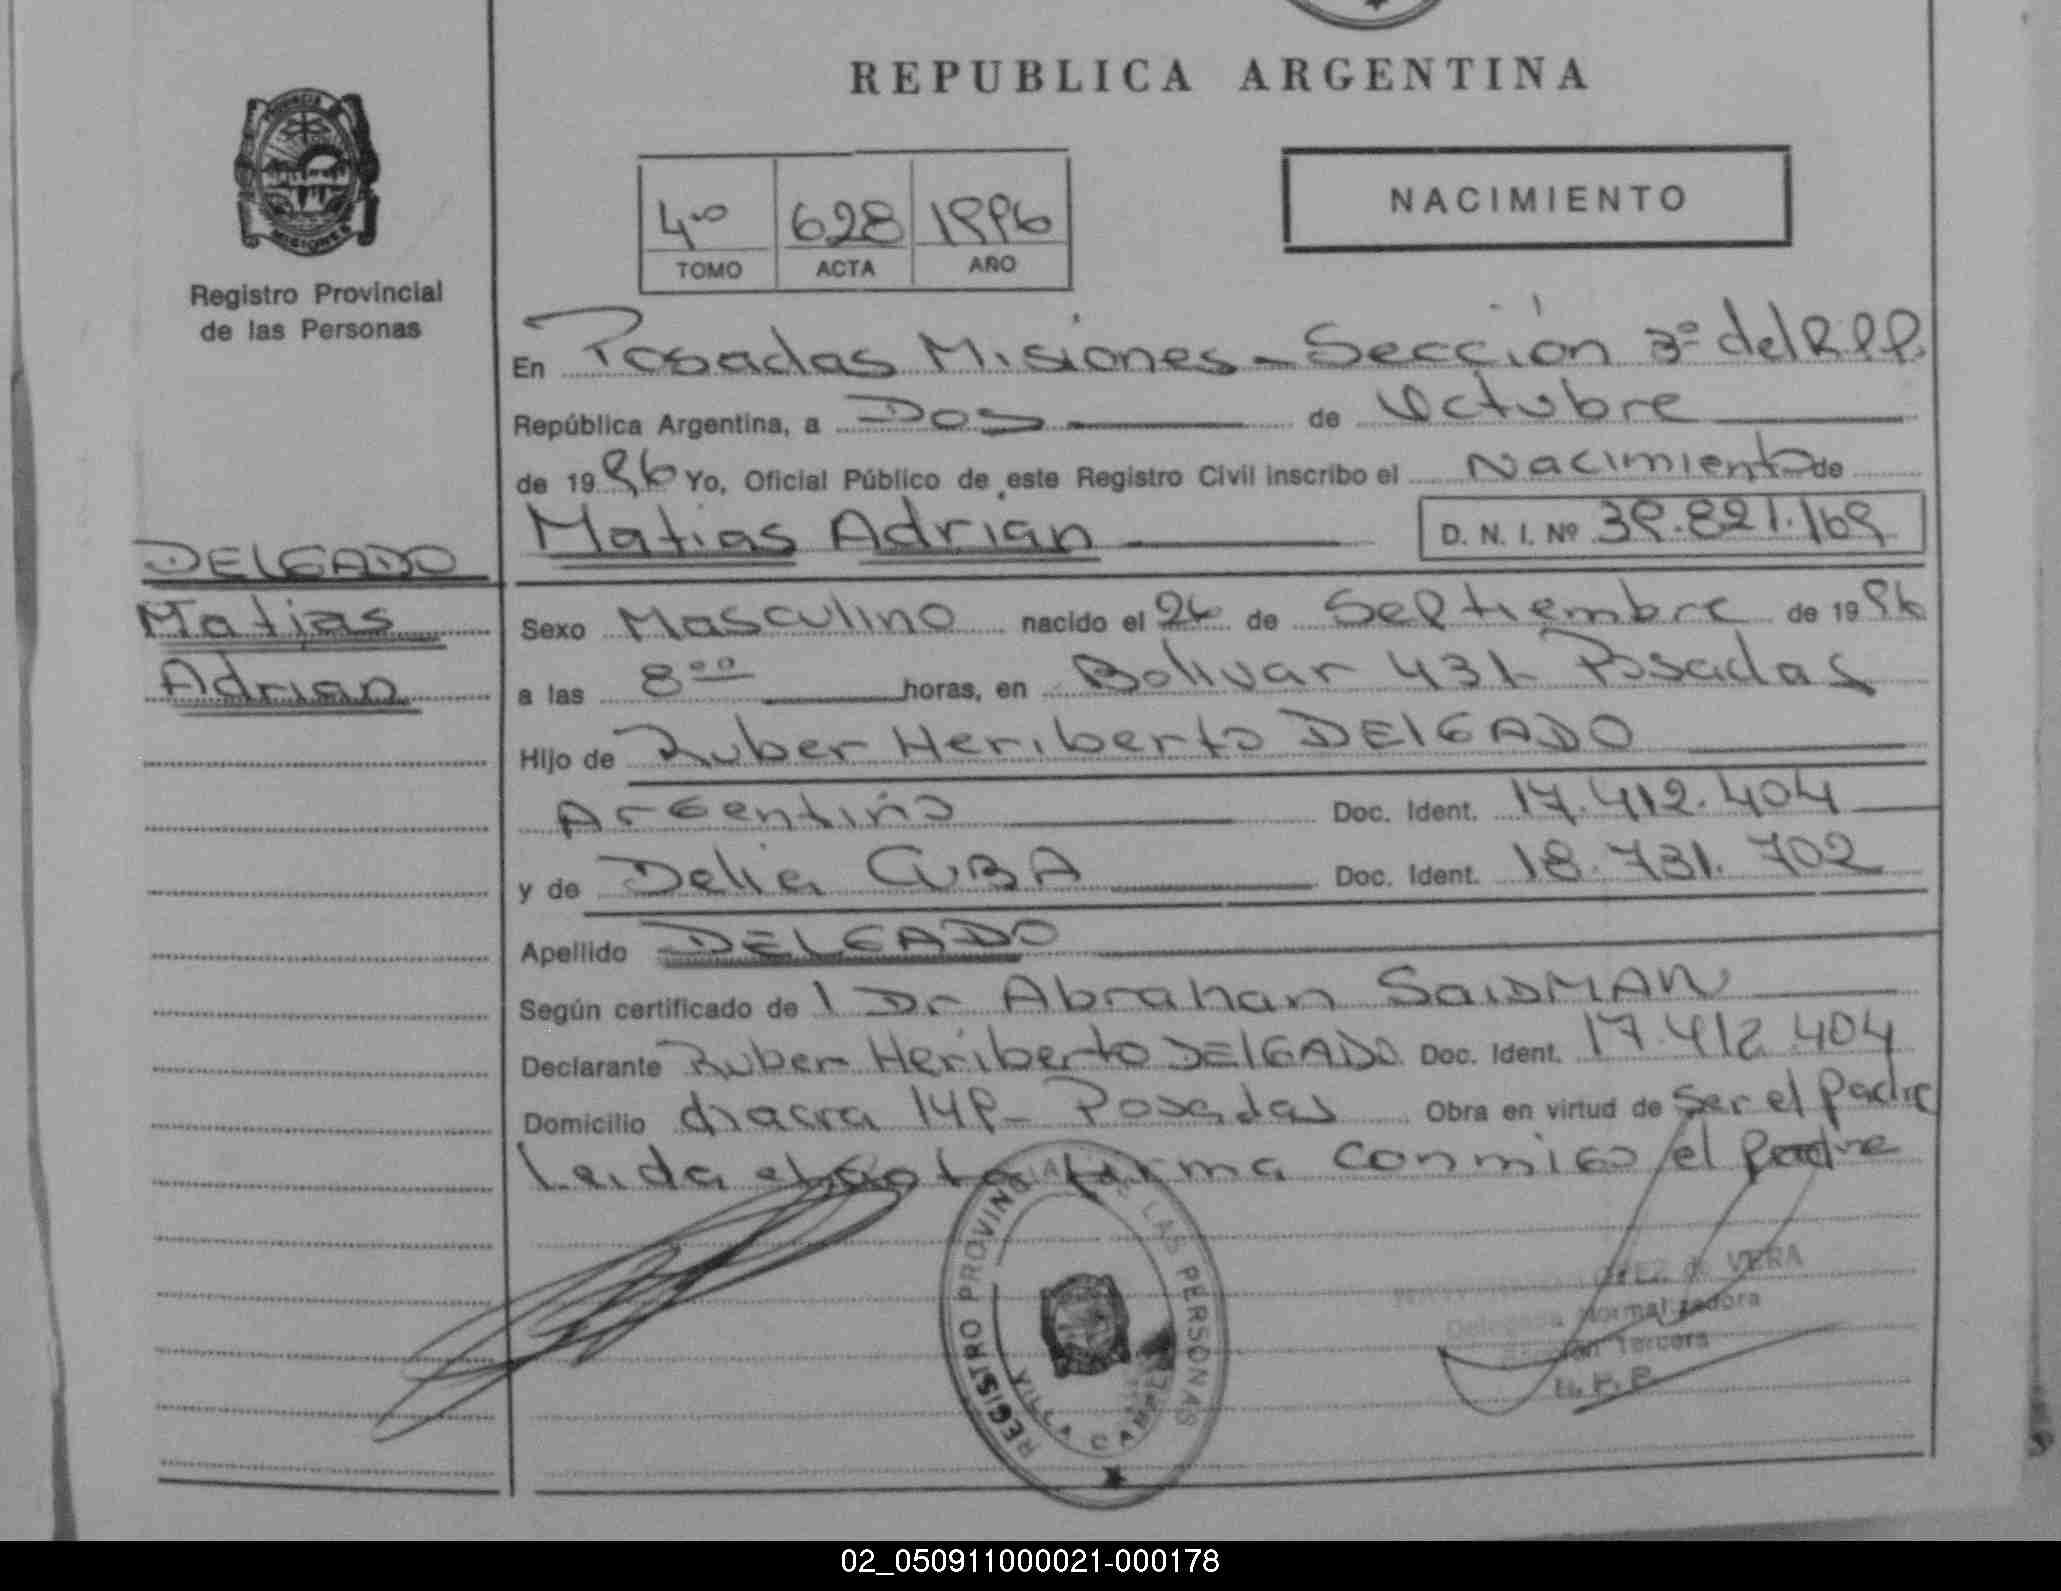 REPUBLICA ARGENTINA
PROVINCIA
MISIONES
Registro Provincial
de las Personas
4to 628 1996
TOMO ACTA AÑO
NACIMIENTO
En Posadas Misiones - Sección 3º del R.P.P.
República Argentina, a Dos de Octubre
de 1996 Yo, Oficial Público de este Registro Civil inscribo el Nacimiento de
Matias Adrian D. N. I. Nº 39.821.169
DELGADO
Matias
Adrian
Sexo Masculino nacido el 26 de Septiembre de 1996
a las 8 00 horas, en Bolivar 431 Posadas
Hijo de Ruber Heriberto DElGADO
Argentino Doc. Ident. 17.412.404
y de Delia CUBA Doc. Ident. 18.731.702
Apellido DELGADO
Según certificado de 1 Dr Abrahan SaiDMAN
Declarante Ruber Heriberto DElGADO Doc. Ident. 17.412.404
Domicilio chacra 149- Posadas Obra en virtud de Ser el padre
Leida el acta firma conmigo el padre
REGISTRO PROVINCIAL DE LAS PERSONAS
VILLA
LOPEZ de VERA
Delegada Normalizadora
Sección Tercera
R. P. P.
02_050911000021-000178